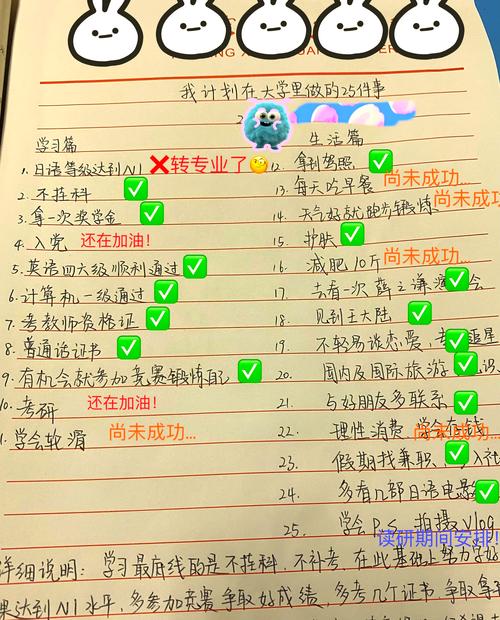 我计划在大学里做的25件事
学习篇
1. 日语等级达到N1 转专业了
2. 不挂科
3. 拿一次奖学金
4. 入党 还在加油!
5. 英语四六级顺利通过
6. 计算机一级通过
7. 考教师资格证
8. 普通话证书
9. 有机会就参加竞赛锻炼自己
10. 考研 还在加油!
1. 学会轮滑 尚未成功...
生活篇
12. 拿到驾照
13. 每天吃早餐 尚未成功...
14. 天气好就跑步锻炼 尚未成功...
15. 护肤
16. 减肥10斤 尚未成功...
17. 去看一次薛之谦演 会
18. 见到王大陆
19. 不轻易谈恋爱, 追星
20. 国内及国际旅游
21. 与好朋友多联系
22. 理性消费 学会存钱 尚未成功...
23. 假期找兼职、 入社
24. 多看几部日语电影
25. 学会PS 拍摄vlog
读研期间安排!
详细说明: 学习最底线的是不挂科,不补考,在此基础上努力学好
果达到N1水平,多参加竞赛争取好成绩,多考几个证书,争取拿